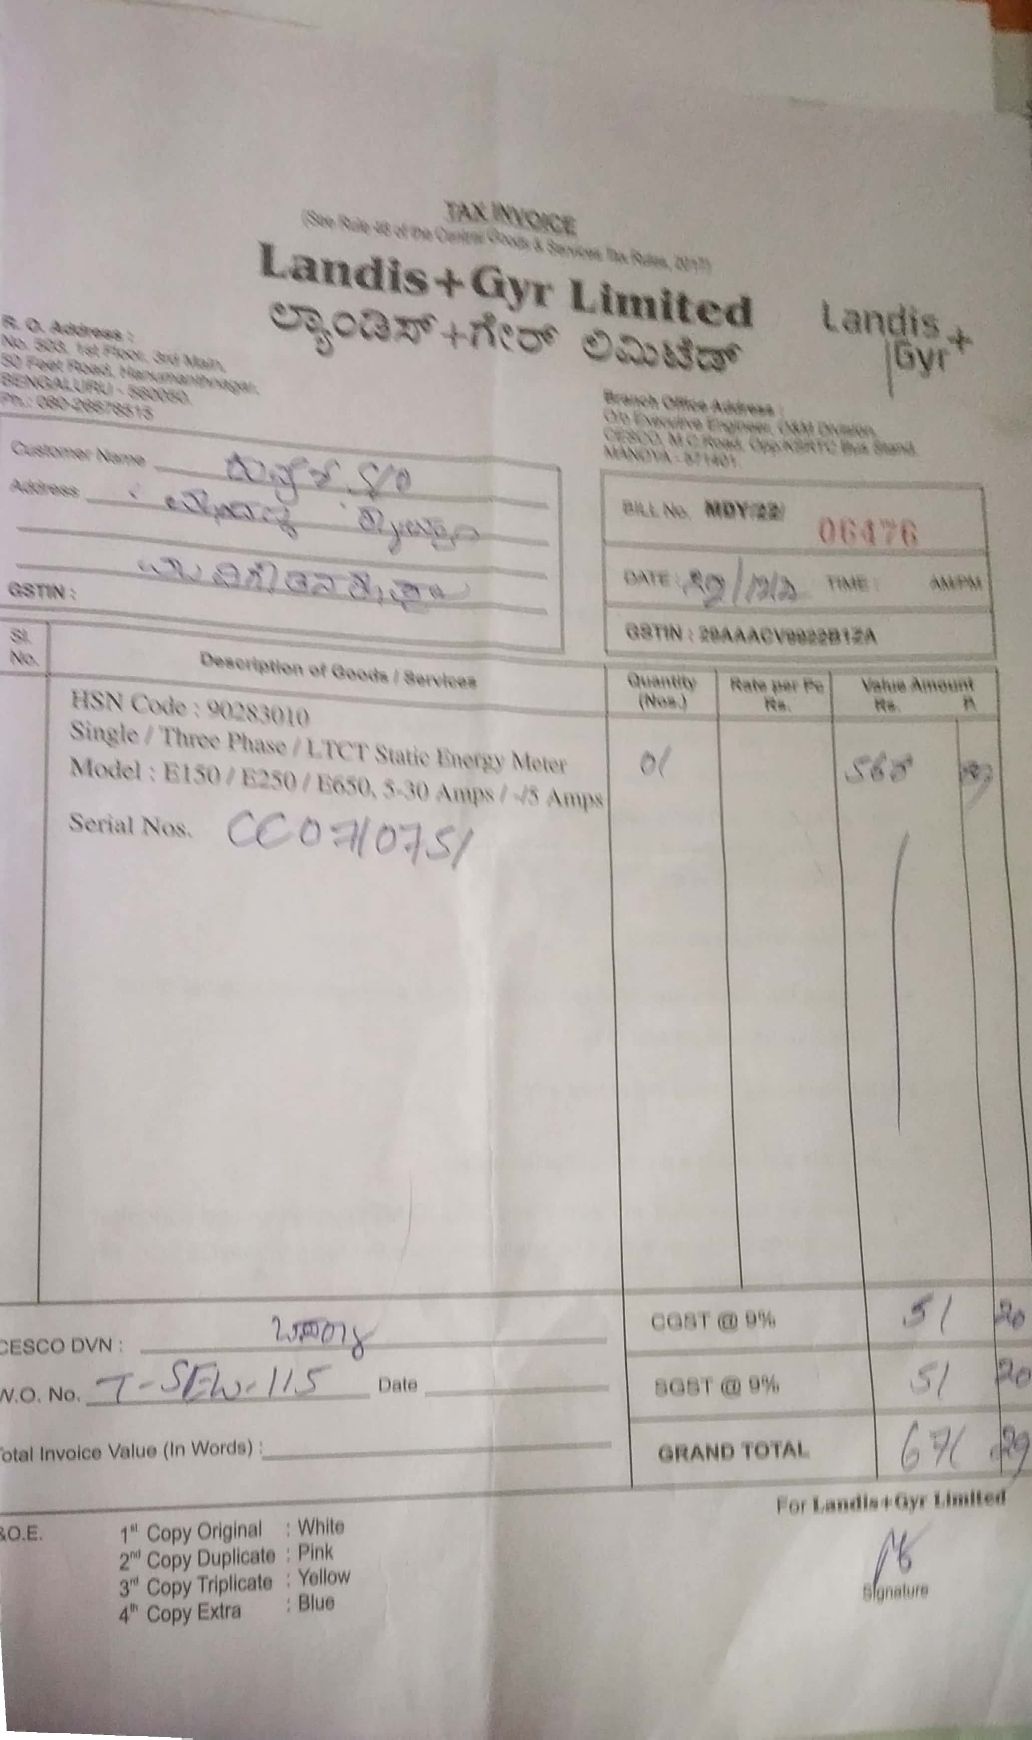 TAX INVOICE
(See Rule 48 of the Central Goods & Services Tax Rules, 2017)
Landis+Gyr Limited
ಲ್ಯಾಂಡಿಸ್+ಗೇರ್ ಲಿಮಿಟೆಡ್
Landis
Gyr+
R. O. Address :
No. 503, 1st Floor, 3rd Main,
50 Feet Road, Hanumanthnagar,
BENGALURU - 560050.
Ph.: 080-26678515
Branch Office Address :
O/o Executive Engineer, O&M Division,
CESCO, M.C.Road, Opp.KSRTC Bus Stand,
MANDYA - 571401.
Customer Name S/O
Address
GSTIN :
BILL No. MDY/22/ 06476
DATE : TIME : AM/PM
GSTIN : 29AAACV9922B1ZA
Sl. No. Description of Goods / Services Quantity (Nos.) Rate per Pc Rs. Value Amount Rs. P.
HSN Code : 90283010
Single / Three Phase / LTCT Static Energy Meter 01
Model : E150 / E250 / E650, 5-30 Amps / -/5 Amps
Serial Nos. CC0710751
CESCO DVN :
CGST @ 9% 51 20
W.O. No. T-SEW-115 Date
SGST @ 9% 51 20
Total Invoice Value (In Words) :
GRAND TOTAL 671 29
For Landis+Gyr Limited
&O.E.
1st Copy Original : White
2nd Copy Duplicate : Pink
3rd Copy Triplicate : Yellow
4th Copy Extra : Blue
Signature